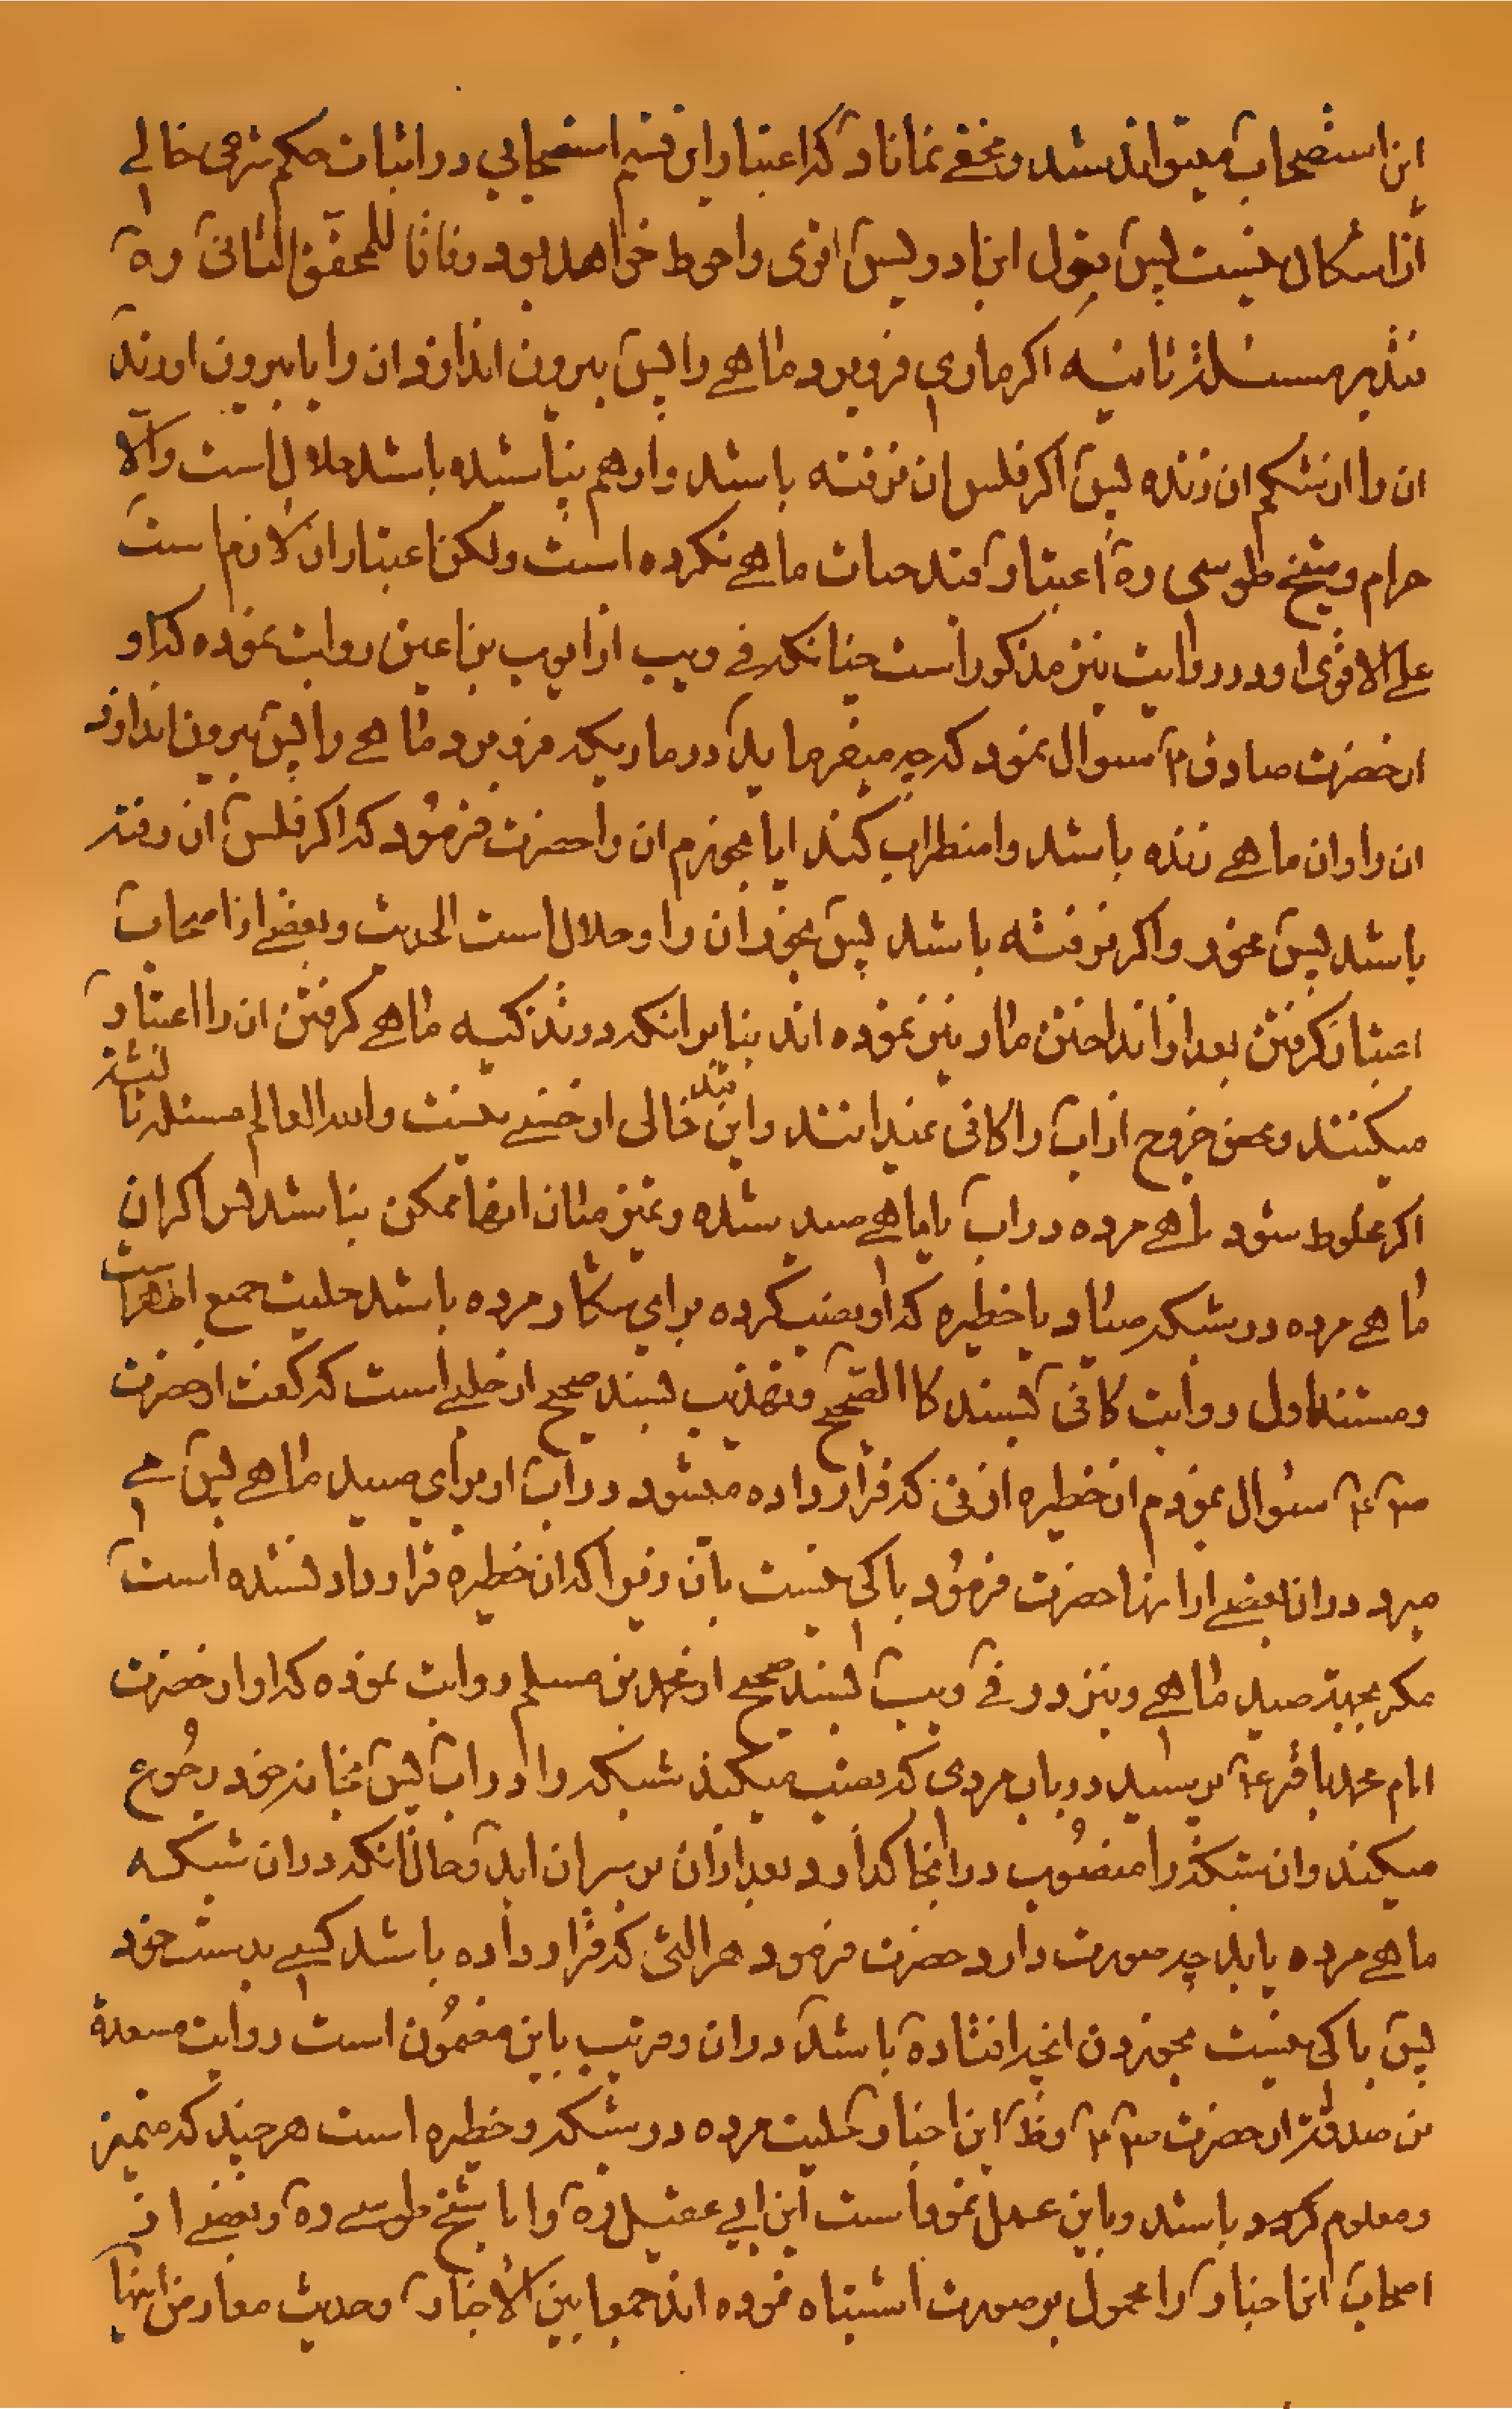 این استصحاب میتواند شد و مخفے نماناد که اعتبار این قسم استصحابی در اثبات حکم شرعی خالے
از اشکال نیست پس بقول ابن ادریس اقوی و احوط خواهد بود وفاقا للمحقق الثانی ره
فتدبر مسئلة ثانیه اکر ماری فرو برد ماهے را پس بیرون اندازد ان را یا بیرون اورند
ان را از شکم ان زنده پس اکر فلس ان نرفته باشد و ارهم نپاشیده باشد حلال است و الّا
حرام و شیخ طوسی ره اعتبار قید حیات ماهے نکرده است ولکن اعتبار ان لازم است
علے الاقوی او در روایت نیز مذکور است چنانکه فے ویب از ایوب بن اعین روایت نموده که او
از حضرت صادق ع سوال نمود که چه میفرماید در ماریکه فرو برد ماهے را پس بیرون اندازد
ان را و ان ماهے زنده باشد و اضطراب کند ایا بخورم ان را حضرت فرمود که اکر فلس ان رفته
باشد پس مخور و اکر نرفته باشد پس بخور ان را و حلال است الحدیث و بعضے از اصحاب
اعتبار کرفتن بعد از انداختن مار نیز نموده اند بنابر انکه در تذکیه ماهے کرفتن ان را اعتبار
میکنند و محض خروج از اب را کافی نمیدانند و این قید خالی از حسنے نیست و الله العالم مسئله ثالثه
اکر مخلوط شود ماهے مرده در اب با ماهے صید شده و تمیز میان انها ممکن نباشد پس اکر ان
ماهے مرده در شبکه صیاد یا خطیره که او نصب کرده برای شکار مرده باشد حلیت جمیع اظهر است
و مستند اول روایت کافی بسند کاالصحیح و تهذیب بسند صحیح از حلبے است که کفت از حضرت
ص ع سئوال نمودم از خطیره از نی که قرار داده میشود در اب از برای صید ماهے پس مے
میرد در ان بعضے از انها حضرت فرمود باکی نیست بان زیرا که ان خطیره قرار داد نشده است
مکر بجهة صید ماهے و نیز در فے ویب بسند صحیح از محمد بن مسلم روایت نموده که او از حضرت
امام محمد باقر ع پرسید در باب مردی که نصب میکند شبکه را در اب پس بخانه خود رجوع
میکند و ان شبکه را منصوب در انجا کذارد بعد ازان بر سر ان اید و حال انکه در ان شبکه
ماهے مرده یابد چه صورت دارد حضرت فرمود هر التی که قرار داده باشد کسے بدست خود
پس باکی نیست بخوردن انچه افتاده باشد در ان و قریب باین مضمون است روایت مسعدة
بن صدقة از حضرت ص ع و ظ این اخبار حلیت مرده در شبکه و خطیره است هر چند که متمیز
و معلوم کردد باشد و باین عمل نموده است ابن ابے عقیل ره و اما شیخ طوسے ره و بعضے از
اصحاب این اخبار را محمول بر صورت اشتباه نموده اند جمعا بین الاخبار و حدیث معارض اینها